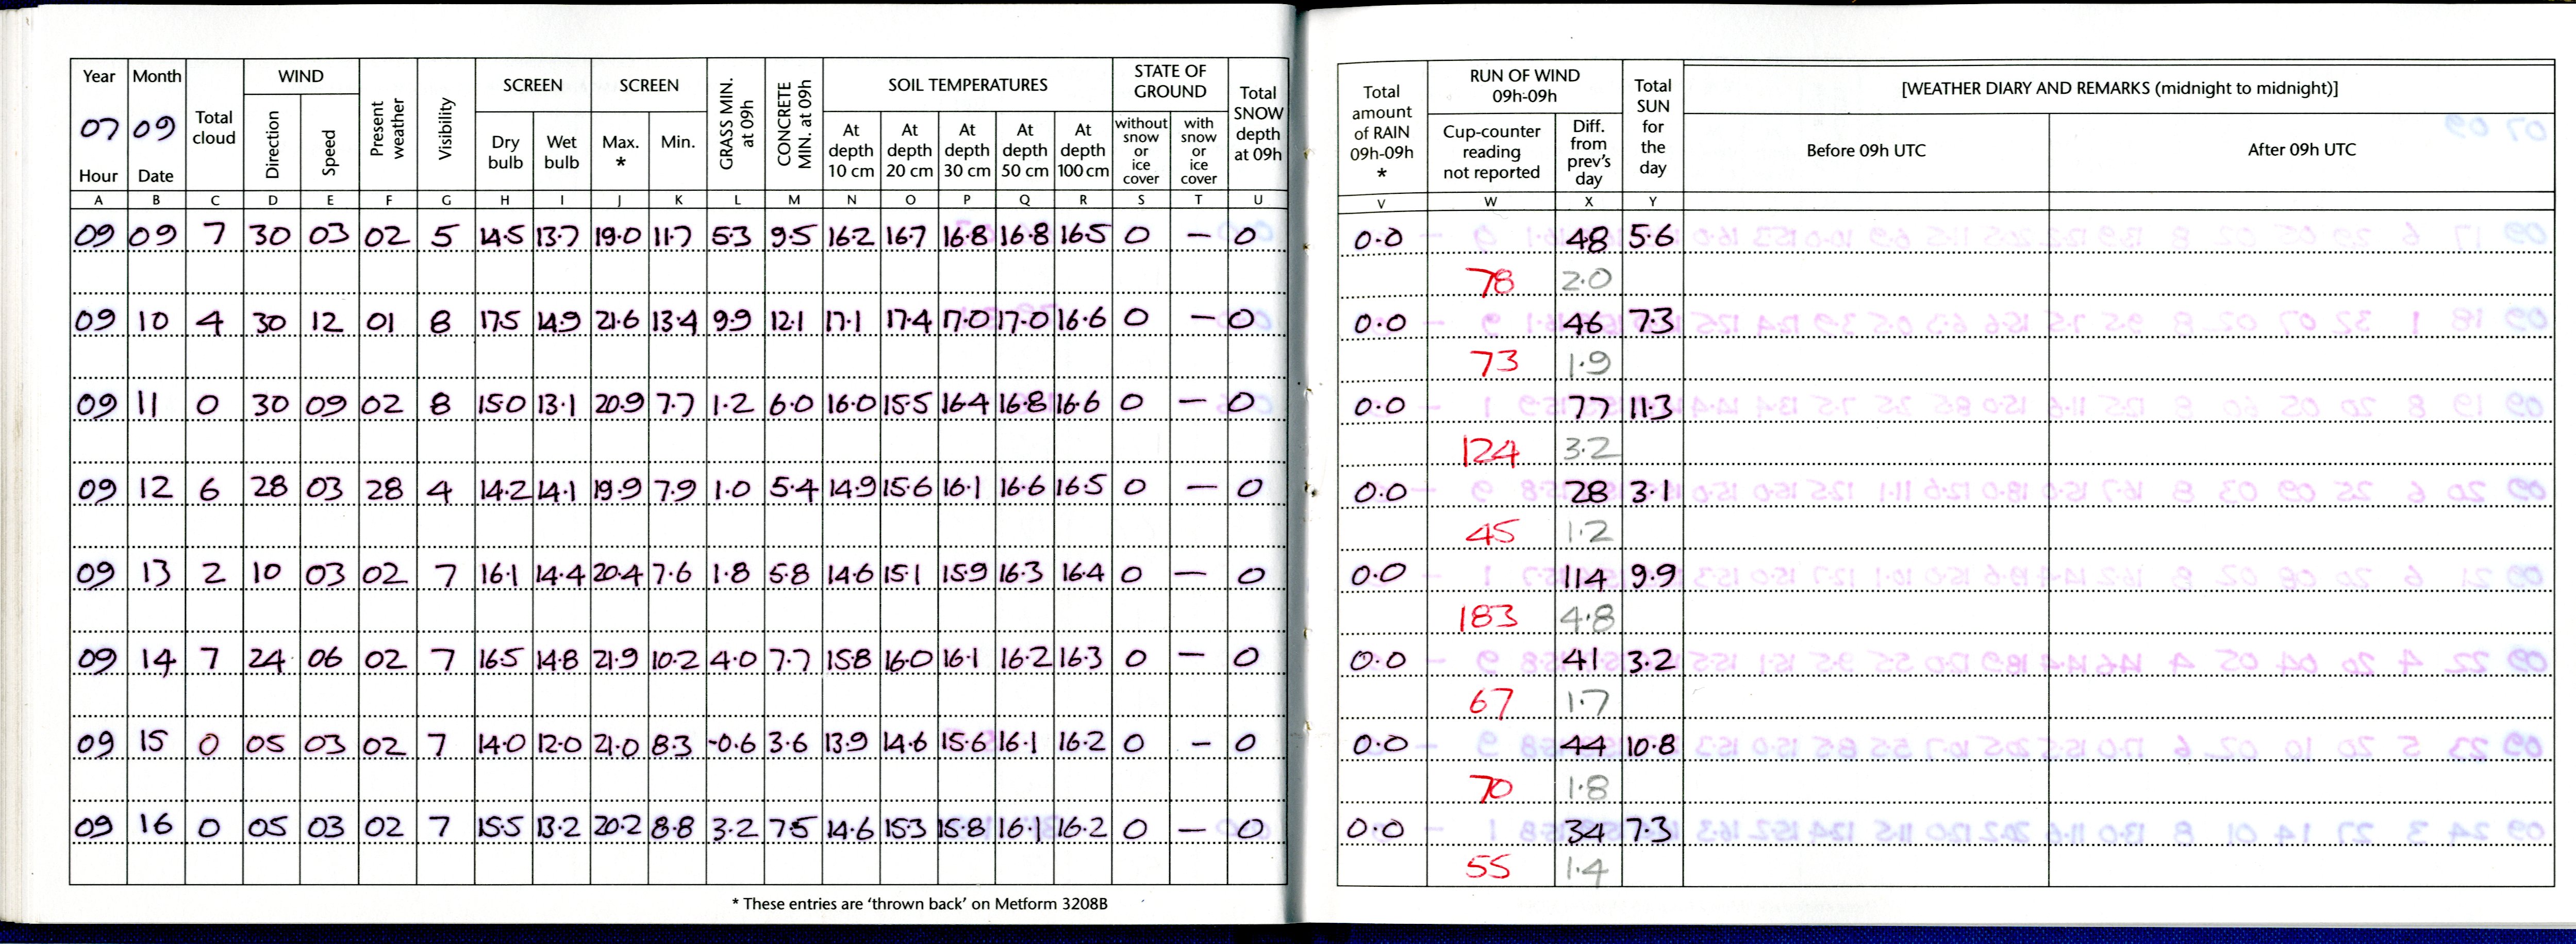 Year Month Total cloud WIND Present weather Visibility SCREEN SCREEN GRASS MIN. at 09h CONCRETE MIN. at 09h SOIL TEMPERATURES STATE OF GROUND Total SNOW depth at 09h Total amount of RAIN 09h-09h * RUN OF WIND 09h-09h Total SUN for the day [WEATHER DIARY AND REMARKS (midnight to midnight)]
07 09
Hour Date Direction Speed Dry bulb Wet bulb Max. * Min. At depth 10 cm At depth 20 cm At depth 30 cm At depth 50 cm At depth 100 cm without snow or ice cover with snow or ice cover Cup-counter reading not reported Diff. from prev's day Before 09h UTC After 09h UTC
A B C D E F G H I J K L M N O P Q R S T U V W X Y
09 09 7 30 03 02 5 14.5 13.7 19.0 11.7 5.3 9.5 16.2 16.7 16.8 16.8 16.5 0 — 0 0.0 48 5.6
78 2.0
09 10 4 30 12 01 8 17.5 14.9 21.6 13.4 9.9 12.1 17.1 17.4 17.0 17.0 16.6 0 — 0 0.0 46 7.3
73 1.9
09 11 0 30 09 02 8 15.0 13.1 20.9 7.7 1.2 6.0 16.0 15.5 16.4 16.8 16.6 0 — 0 0.0 77 11.3
124 3.2
09 12 6 28 03 28 4 14.2 14.1 19.9 7.9 1.0 5.4 14.9 15.6 16.1 16.6 16.5 0 — 0 0.0 28 3.1
45 1.2
09 13 2 10 03 02 7 16.1 14.4 20.4 7.6 1.8 5.8 14.6 15.1 15.9 16.3 16.4 0 — 0 0.0 114 9.9
183 4.8
09 14 7 24 06 02 7 16.5 14.8 21.9 10.2 4.0 7.7 15.8 16.0 16.1 16.2 16.3 0 — 0 0.0 41 3.2
67 1.7
09 15 0 05 03 02 7 14.0 12.0 21.0 8.3 -0.6 3.6 13.9 14.6 15.6 16.1 16.2 0 — 0 0.0 44 10.8
70 1.8
09 16 0 05 03 02 7 15.5 13.2 20.2 8.8 3.2 7.5 14.6 15.3 15.8 16.1 16.2 0 — 0 0.0 34 7.3
55 1.4
* These entries are 'thrown back' on Metform 3208B